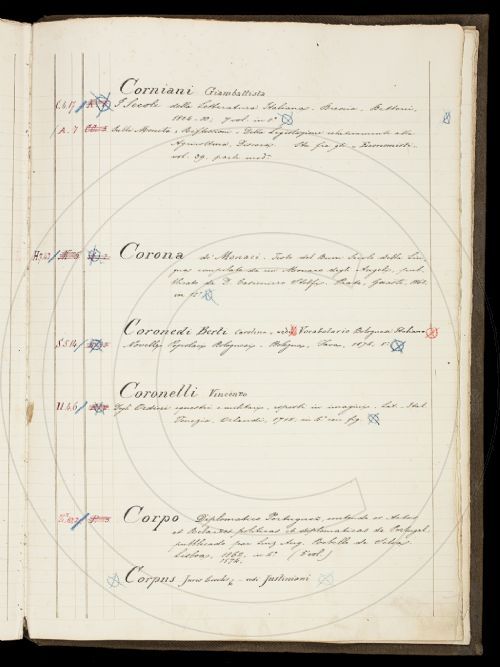 Corniani Giambattista
C.4.17 I Secoli della Letteratura Italiana. Brescia. Bettoni,
1804-10. 9 vol. in 8°
A. 7 Sulla Moneta. Riflessioni. Della Legislazione relativamente alla
Agricoltura, Discorsi. Sta fra gli Economisti.
vol. 39. parte mod.
Corona de' Monaci. Testo del Buon Secolo della Lin-
gua compilato da un Monaco degli Angeli, pub-
blicato da D. Casimiro Stolfi. Prato, Guasti, 1862.
in 8°
Coronedi Berti Carolina, vedi Vocabolario Bolognese Italiano
Novelle Popolari Bolognesi. Bologna, Fava, 1874. 8°
Coronelli Vincenzo
11.4.6 Degli Ordini equestri e militari, esposti in imagini. Lat. Ital.
Venezia, Orlandi, 1715. in 8° con fig.
Corpo Diplomatico Portuguez, contendo os Actos
et Relações politicas et diplomaticas de Portugal
publicado por Luiz Aug. Rebello da Silva.
Lisboa, 1862 in 4° (5 vol)
1874.
Corpus Juris Civilis vedi Justiniani